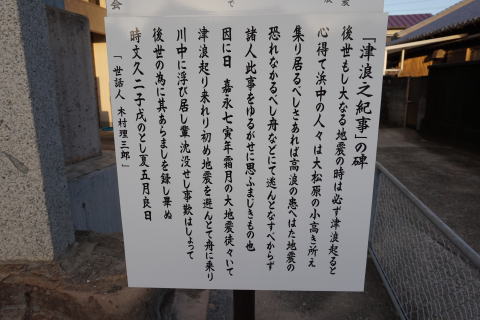 「津浪之紀事」の碑
後世もし大なる地震の時は必ず津浪起ると
心得て浜中の人々は大松原の小高き所え
集り居るべしさあれば高浪の患へはた地震の
恐れなかるべし舟などにて逃んとなすべからず
諸人此事をゆるがせに思ふまじきもの也
因に曰 嘉永七寅年霜月の大地震徒々いて
津浪起り来れり初め地震を避んとて舟に乗り
川中に浮び居し輩沈没せし事歎はしよって
後世の為に其あらましを録し畢ぬ
時文久二子戌のとし夏五月良日
「世話人 木村理三郎」
会
で